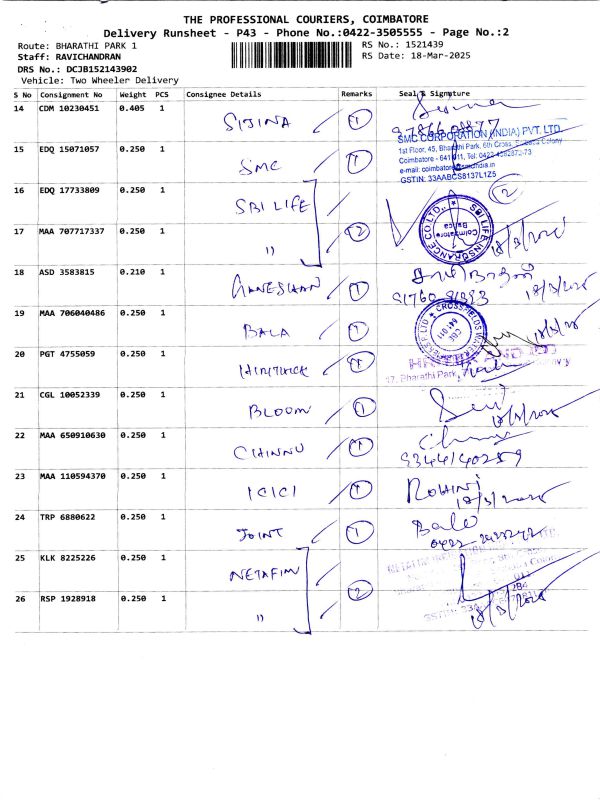 THE PROFESSIONAL COURIERS, COIMBATORE
Delivery Runsheet - P43 - Phone No.:0422-3505555 - Page No.:2
Route: BHARATHI PARK 1
RS No.: 1521439
Staff: RAVICHANDRAN
RS Date: 18-Mar-2025
DRS No.: DCJB152143902
Vehicle: Two Wheeler Delivery
S No Consignment No Weight PCS Consignee Details Remarks Seal & Signature
14 CDM 10230451 0.405 1 SIJINA 1
15 EDQ 15071057 0.250 1 SMC 1
SMC CORPORATION (INDIA) PVT. LTD.
1st Floor, 45, Bharathi Park, 6th Cross,
Coimbatore - 641 011, Tel: 0422
GSTIN: 33AABCS8137L1Z5
16 EDQ 17733809 0.250 1 SBI LIFE 2
17 MAA 707717337 0.250 1 " 2
SBI LIFE INSURANCE CO.LTD.,
Coimbatore
18/3/2025
18 ASD 3583815 0.210 1 GANESHAN 1
18/3/2025
19 MAA 706040486 0.250 1 BALA 1
641 011
18/3/25
20 PGT 4755059 0.250 1 1
Bharathi Park,
21 CGL 10052339 0.250 1 BLOOM 1
18/3/2025
22 MAA 650910630 0.250 1 CHINNU 1
9344140259
23 MAA 110594370 0.250 1 ICICI 1 ROHINI
18/3/2025
24 TRP 6880622 0.250 1 JOINT 1
25 KLK 8225226 0.250 1 NETAFIM
26 RSP 1928918 0.250 1 " 2
18/3/2025